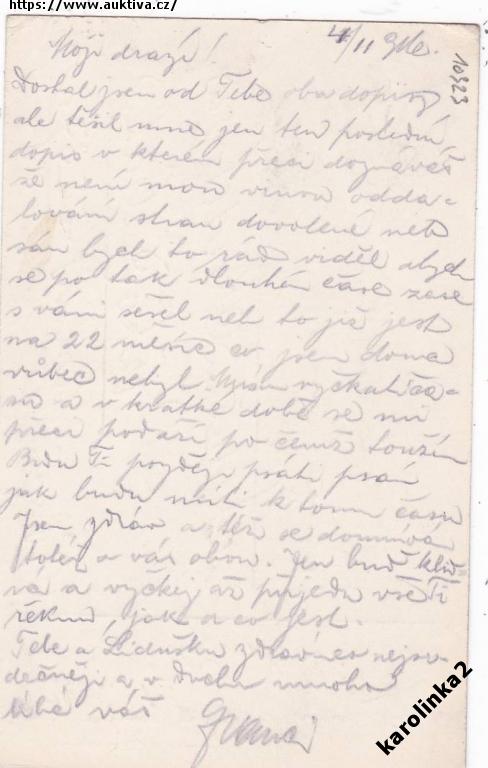 https://www.auktiva.cz/
Moji drazí! 4/11 916.
10323
Dostal jsem od Tebe oba dopisy
ale těšil mne jen ten poslední
dopis v kterém přeci doznáváš
že není mou vinou odda-
lování stran dovolené neb
sám bych to rád viděl abych
se po tak dlouhém čase zase
s vámi sešel neb to již jest
na 22 měsíc co jsem doma
vůbec nebyl. Musím vyčkati ča-
su a v krátké době se mi
přeci podaří po čemž toužím
Budu Ti později psáti
jak budu míti k tomu času
Jsem zdráv a též se domnívám
totéž a vás obou. Jen buď klid-
na a vyckej až přijedu vše Ti
řeknu, jak a co jest.
Tebe a Lidušku zdravím co nejsr-
dečněji a v duchu mnoho
líbá váš
karolinka2